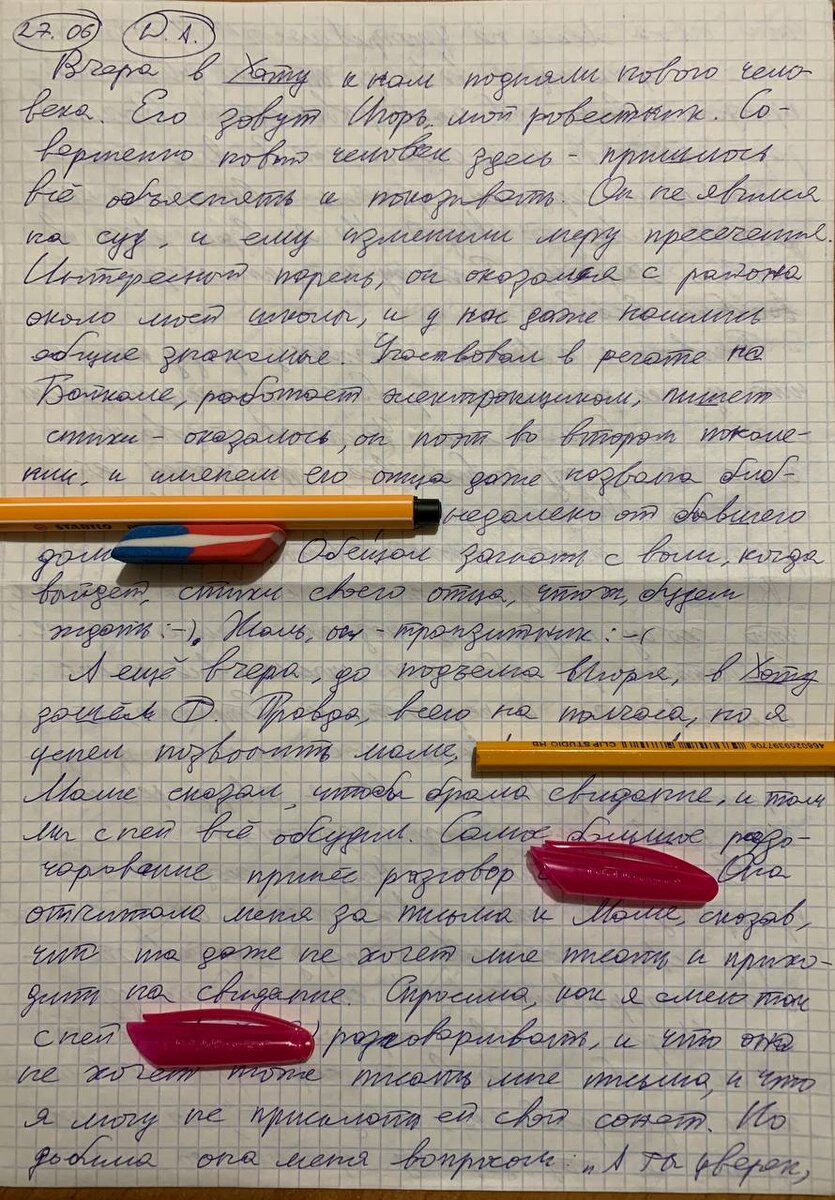 27.06 D.A.
Вчера в Хату к нам подняли нового чело-
века. Его зовут Игорь, мой ровестник. Со-
вершенно новый человек здесь - пришлось
всё объяснять и показывать. Он не явился
на суд, и ему изменили меру пресечения.
Интересный парень, он оказался с района
около моей школы, и у нас даже нашлись
общие знакомые. Участвовал в регате на
Байкале, работает электронщиком, пишет
стихи - оказалось, он поэт во втором поколе-
нии, и именем его отца даже названа биб-
STABILO недалеко от бывшего
Обещал загнать с воли, когда
выйдет, стихи своего отца, что ж, будем
ждать :-). Жаль, он - транзитник :-(
А ещё вчера, до подъёма Игоря, в Хату
зашёл Т. Правда, всего на полчаса, но я
успел позвонить маме,
4680259397706 CLIP STUDIO HB
Маме сказал, чтобы брала свидание, и там
мы с ней всё обсудим. Самое большое разо-
чарование принёс разговор Она
отчитала меня за письма к Маме, сказав,
что та даже не хочет мне писать и прихо-
дить на свидание. Спросила, как я смею так
с ней разговаривать, и что она
не хочет тоже писать мне письма, и что
я могу не присылать ей свой сонет. Но
добила она меня вопросом: „А ты уверен,